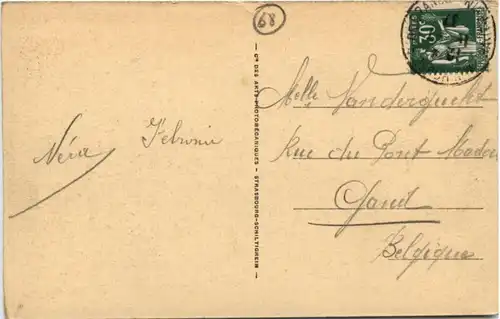 68
30c
Néra
Cie DES ARTS PHOTOMÉCANIQUES - STRASBOURG-SCHILTIGHEIM
Melle Vandergucht
Rue du Pont Madou
Gand
Belgique